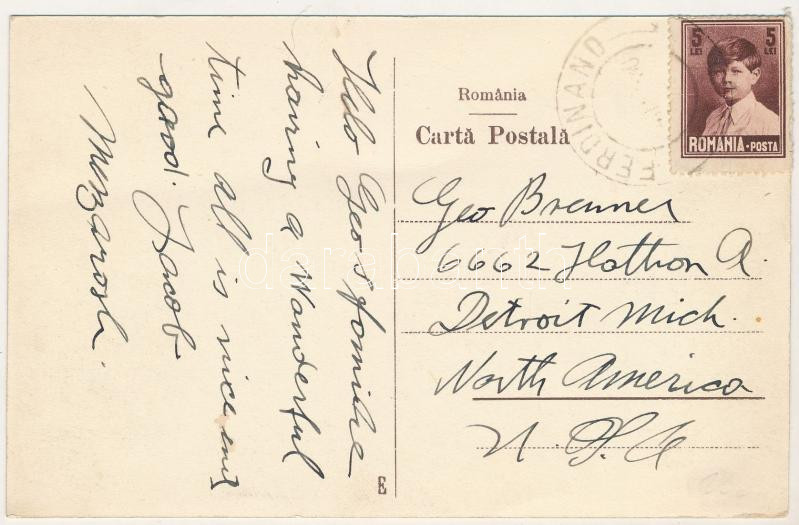 Hello Geo & fomilie
having a Wanderful
time all is nice and
good. Jacob
Mezarosh.
România
Cartă Postală
Geo Brenner
6662 Hathon A.
Detroit Mich.
North America
U. S. A
5 LEI 5 LEI
ROMANIA·POSTA
FERDINAND
E
darabanth